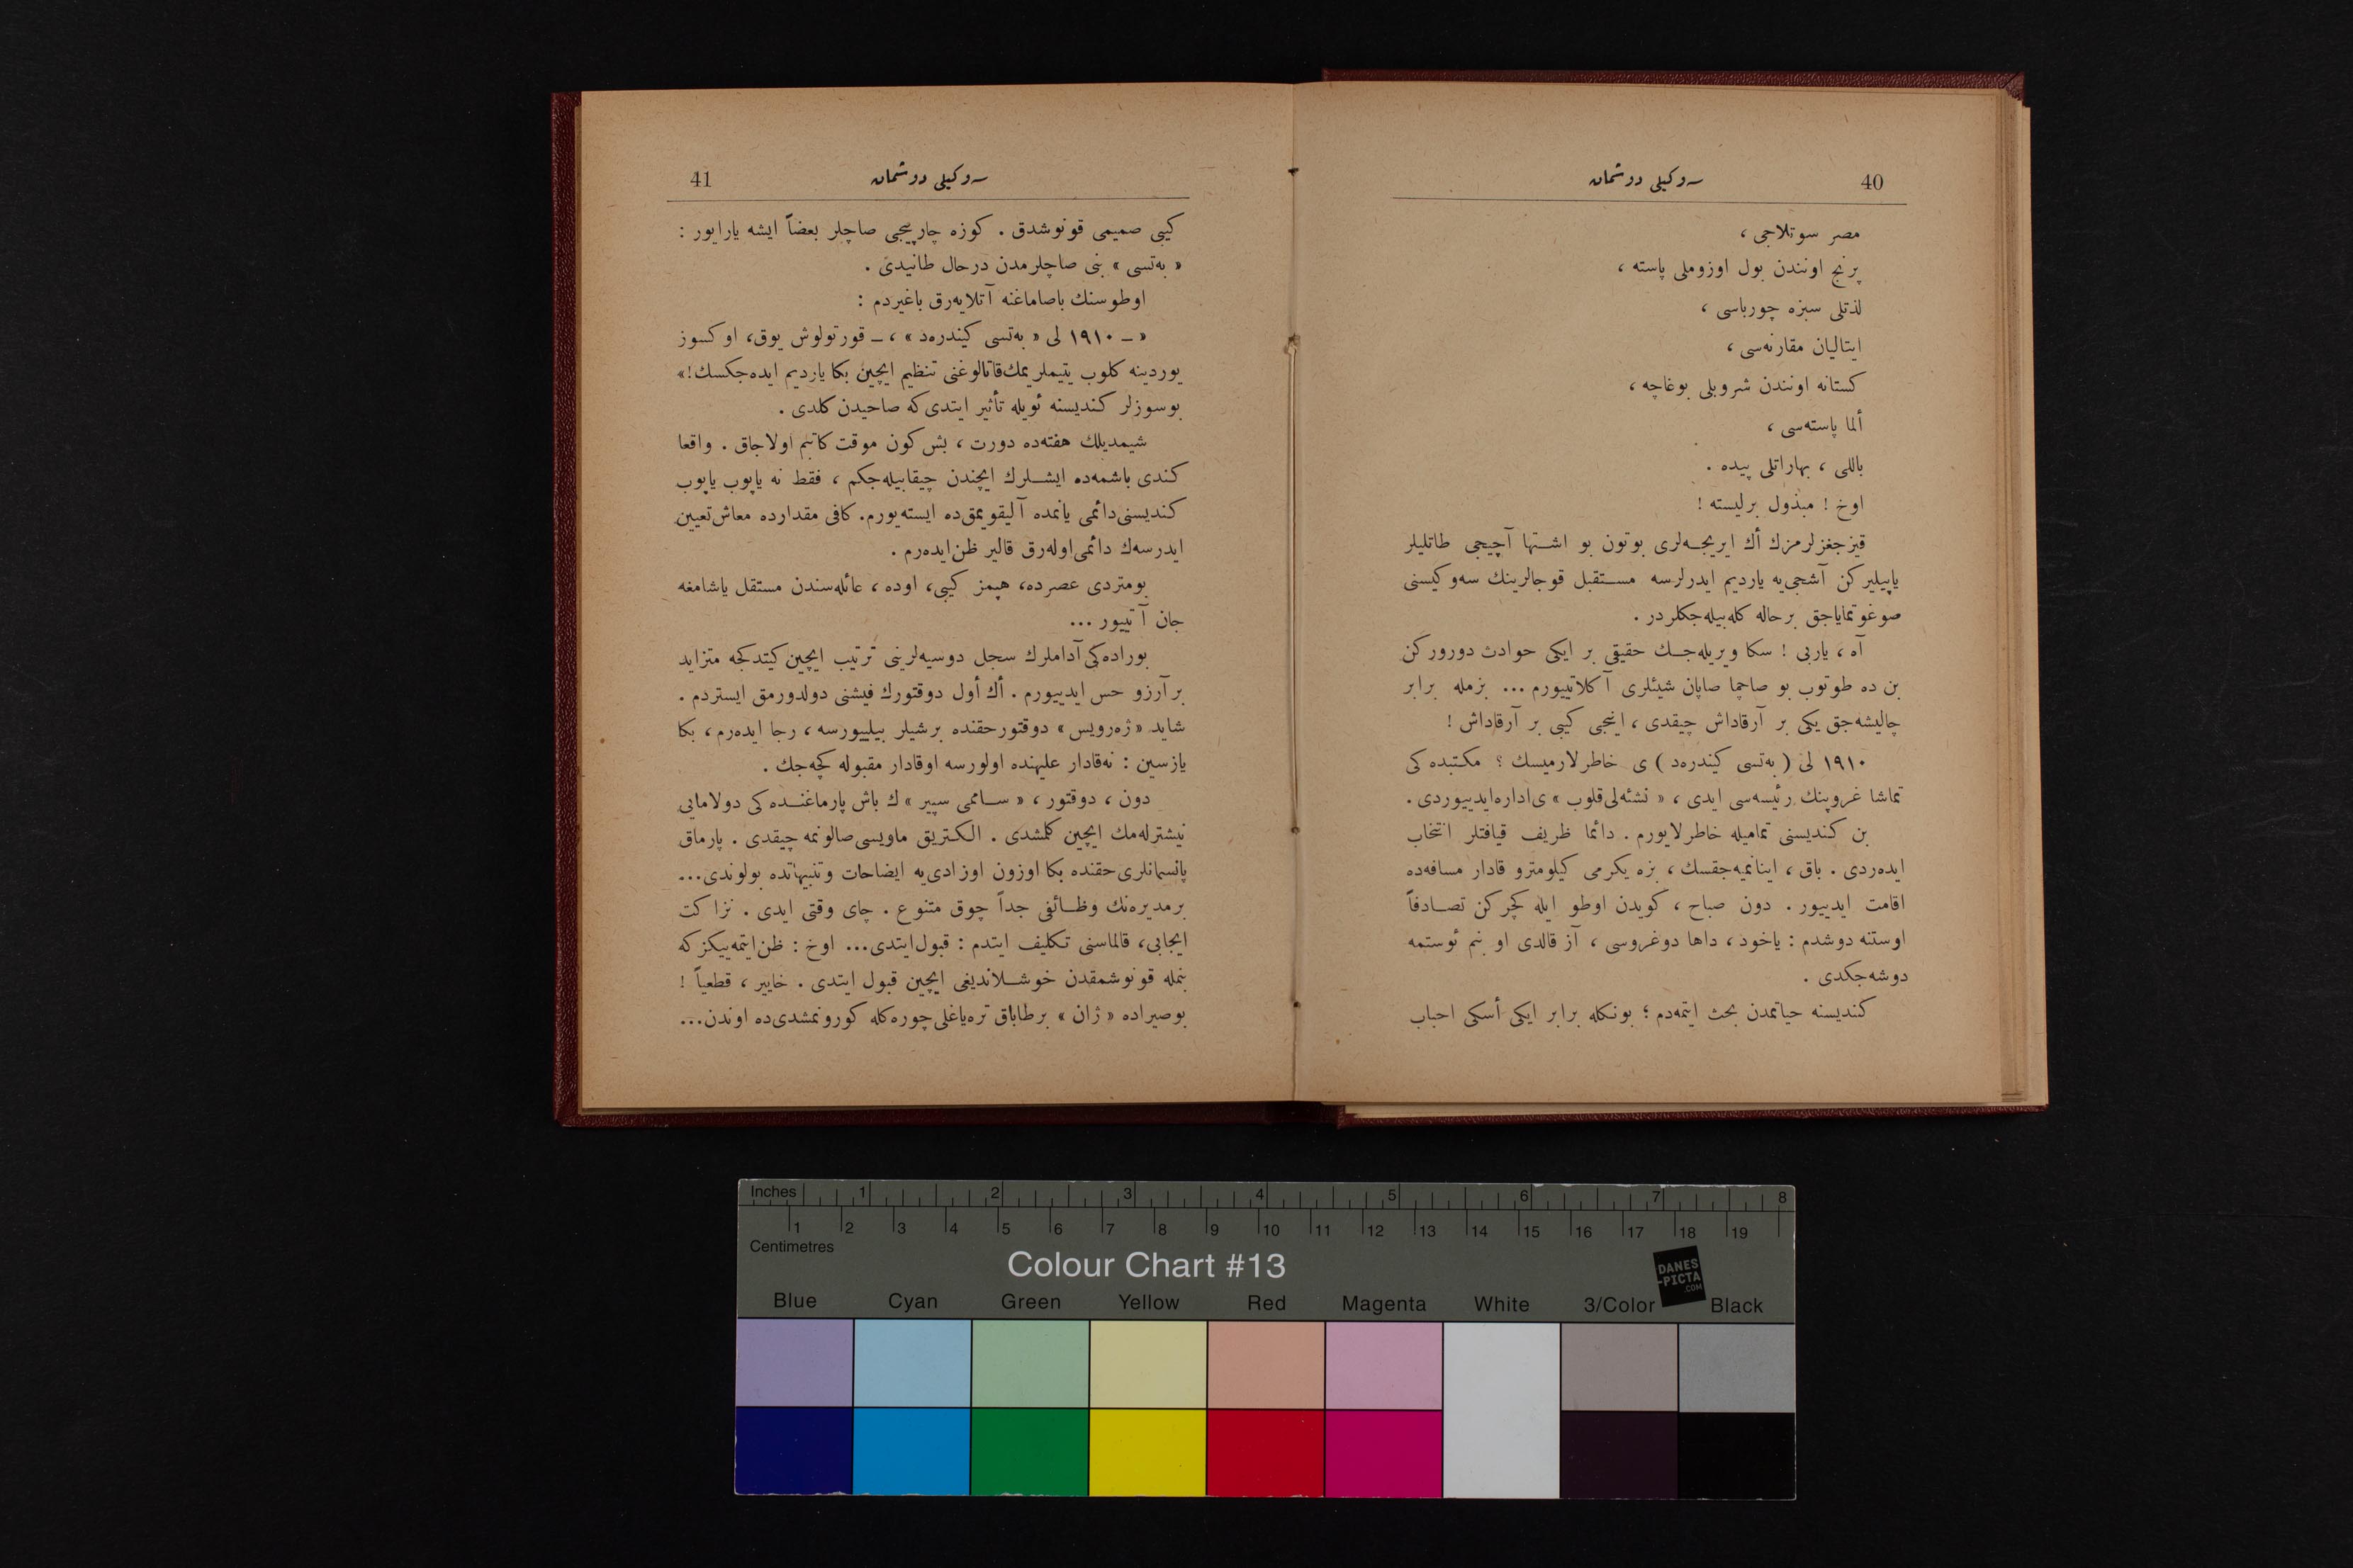 40
سه‌وکیلی دوشمان
مصر سوتلاجی ،
پرنج اونندن بول اوزوملی پاسته ،
لذتلی سبزه چورباسی ،
ایتالیان مقارنه‌سی ،
کستانه اونندن شروبلی بوغاچه ،
ألما پاسته‌سی ،
باللی ، بهاراتلی پیده .
اوخ ! مبذول برلیسته !
قیزجغزلرمزك أك ایریجـه‌لری بوتون بو اشـتها آچیجی طاتلیلر
یاپیلیرکن آشجی‌یه یاردیم ایدرلرسه مسـتقبل قوجالرینك سه‌وکیسنی
صوغوتمایاجق برحاله کله‌بیله‌جکلردر .
آه ، یاربی ! سکا ویریله‌جـك حقیقی بر ایکی حوادث دورورکن
بن ده طوتوب بو صاچما صاپان شیئلری آکلاتییورم ... بزمله برابر
چالیشه‌جق یکی بر آرقاداش چیقدی ، انجی کیی بر آرقاداش !
۱۹۱۰ لی ( به‌تسی کیندره‌د ) ی خاطرلارمیسك ؟ مکتبده کی
تماشا غروپنك رئیسه‌سی ایدی ، « نشئه‌لی قلوب » ی اداره ایدییوردی .
بن کندیسنی تمامیله خاطرلایورم . دائما ظریف قیافتلر انتخاب
ایده‌ردی . باق ، اینانمیه‌جقسك ، بزه یکرمی کیلومترو قادار مسافه‌ده
اقامت ایدییور . دون صباح ، کویدن اوطو ایله کچرکن تصـادفاً
اوستنه دوشدم : یاخود ، داها دوغروسی ، آز قالدی او بنم ئوستمه
دوشه‌جکدی .
کندیسنه حیاتمدن بحث ایتمه‌دم ؛ بونکله برابر ایکی أسکی احباب
41
سه‌وکیلی دوشمان
کیی صمیمی قونوشدق . کوزه چارپیجی صاچلر بعضاً ایشه یارایور :
« به‌تسی » بنی صاچلرمدن درحال طانیدی .
اوطوسنك باصاماغنه آتلایه‌رق باغیردم :
« ــ ۱۹۱۰ لی « به‌تسی کیندره‌د » ، ــ قورتولوش یوق، اوکسوز
یوردینه کلوب یتیملریمك قاتالوغنی تنظیم ایچین بکا یاردیم ایده‌جکسك !»
بوسوزلر کندیسنه ئویله تأثیر ایتدی که صاحیدن کلدی .
شیمدیلك هفته‌ده دورت ، بش کون موقت کاتبم اولاجاق . واقعا
کندی باشمه‌ده ایشـلرك ایچندن چیقابیله‌جکم ، فقط نه یاپوب یاپوب
کندیسنی دائمی یانمده آلیقویمق‌ده ایسته‌یورم . کافی مقدارده معاش تعیین
ایدرسه‌ك دائمی اوله‌رق قالیر ظن ایده‌رم .
بومتردی عصرده، هپمز کیی، اوده ، عائله‌سندن مستقل یاشامغه
جان آتییور ...
بوراده‌کی آداملرك سجل دوسیه‌لرینی ترتیب ایچین کیتدکجه متزاید
بر آرزو حس ایدییورم . أك أول دوقتورك فیشنی دولدورمق ایستردم .
شاید « ژه‌رویس » دوقتور حقنده برشیلر بیلییورسه ، رجا ایده‌رم ، بکا
یازسین : نه‌قادار علیهنده اولورسه اوقادار مقبوله کچه‌جك .
دون ، دوقتور ، « سـاممی سپیر » ك باش پارماغنـده کی دولامایی
نیشترله‌مك ایچین کلمشدی . الکتریق ماویسی صالونمه چیقدی . پارماق
پانسمانلری حقنده بکا اوزون اوزادی‌یه ایضاحات و تنبیهاتده بولوندی...
برمدیره‌نك وظـائفی جداً چوق متنوع . چای وقتی ایدی . نزاکت
ایجابی، قالماسنی تکلیف ایتدم : قبول ایتدی... اوخ : ظن ایتمه‌ییکز که
بنمله قونوشمقدن خوشـلاندیغی ایچین قبول ایتدی . خاییر ، قطعیاً !
بوصیراده « ژان » برطاباق تره‌یاغلی چوره‌کله کورونمشدی‌ده اوندن...
Inches 1 2 3 4 5 6 7 8
1 2 3 4 5 6 7 8 9 10 11 12 13 14 15 16 17 18 19
Centimetres
Colour Chart #13
DANES
-PICTA
.COM
Blue Cyan Green Yellow Red Magenta White 3/Color Black